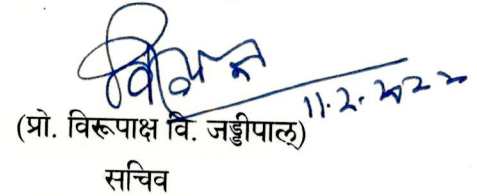 11.2.2022
(प्रो. विरूपाक्ष वि. जड्डीपाल्)
सचिव